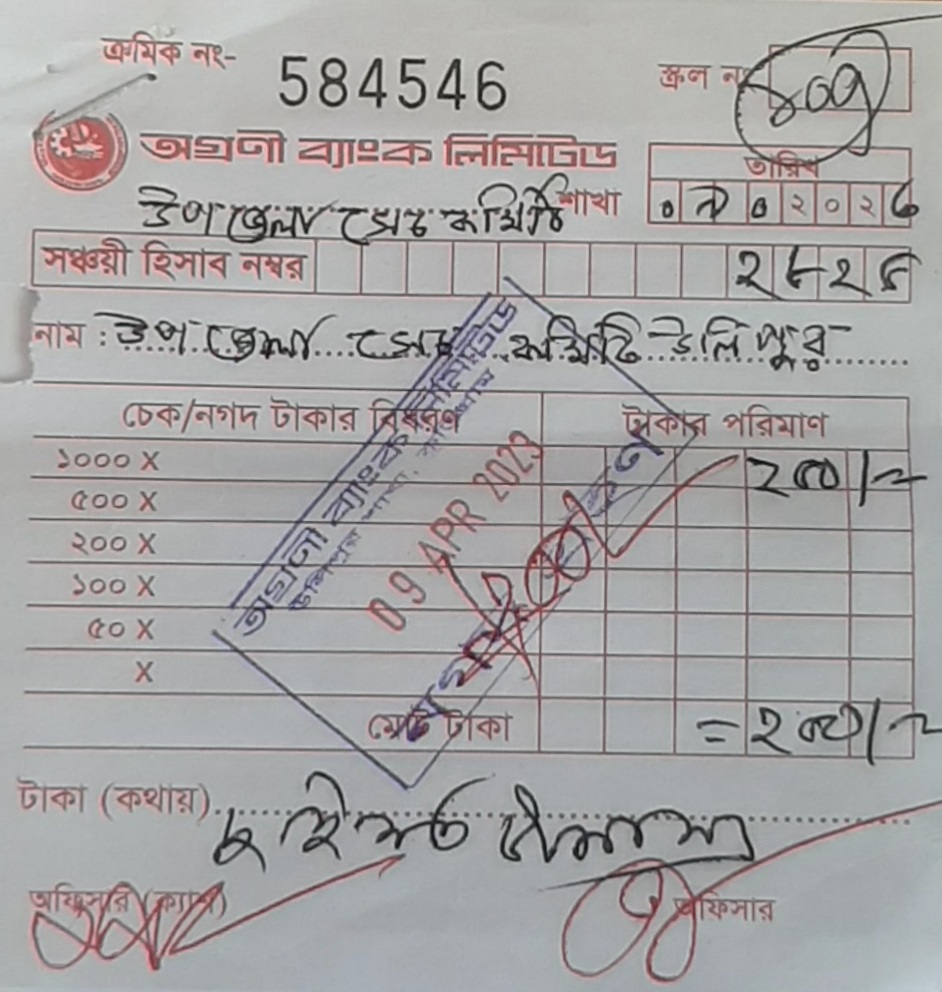 ক্রমিক নং- 584546 স্ক্রল নং ৪০৭
অগ্রণী ব্যাংক লিমিটেড তারিখ
উপজেলা সেচ কমিটি শাখা ০৯০ ২০২
সঞ্চয়ী হিসাব নম্বর ২৮২৮
নাম : উপজেলা সেচ কমিটি উলিপুর
চেক/নগদ টাকার বিবরণ টাকার পরিমাণ
১০০০ X ২০০/~
৫০০ X
২০০ X
১০০ X
৫০ X
X
মোট টাকা =২০০/~
টাকা (কথায়)
দুইশত টাকা মাত্র
অফিসার (ক্যাশ) অফিসার
অগ্রণী ব্যাংক লিমিটেড
উলিপুর শাখা, কুড়িগ্রাম
09 APR 2023
নগদ গ্রহণ